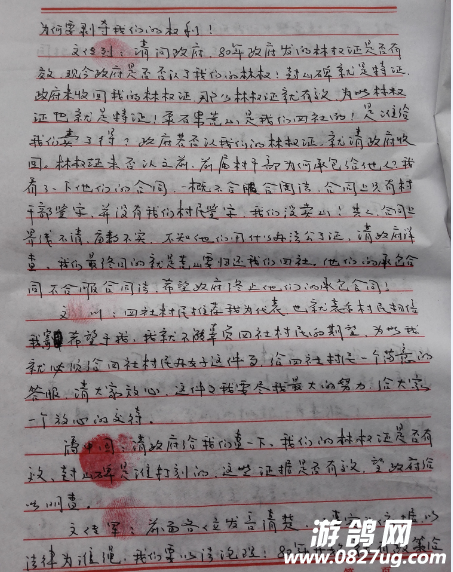 为何要剥夺我们的权利！
文传剑：请问政府，80年政府发的林权证是否有
效，现今政府是否否认了我们的林权！封山碑就是特证，
政府未收回我们的林权证，那么林权证就有效，为此林权
证也就是特证！ 荒山是我们四社的！是谁给
我们卖了得？政府若否认我们的林权证，就请政府收
回，林权证未否认之前，前届村干部为何承包给他人？我
看了一下他们的合同，一概不合服合同法，合同上只有村
干部签字，并没有我们村民签字，我们没卖山！其二合同上
界线不清，亩数不实，不知他们用什么办法办了证，请政府详
查。我们最终目的就是荒山要归还我们四社，他们的承包合
同不合服合同法，希望政府终止他们的承包合同！
文 ：四社村民推荐我为代表，也就表示村民相信
我，希望于我，我就不能辜负四社村民的期望，为此我
就必须给四社村民办好这件事，给四社村民一个满意的
答服，请大家放心，这件事我要尽我最大的努力，给大家
一个放心的交待。
请政府给我们查一下，我们的林权证是否有
效，封山碑是谁打刻的，这些证据是否有效，望政府给
以明查。
文传军：前面各位发言清楚， 以
法律为准绳，我们要以法说话！80年
游鸽网
www.0827ug.com